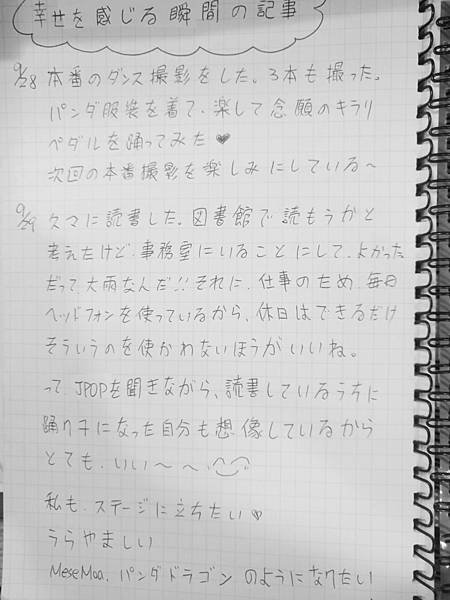 幸せを感じる瞬間の記事
9/28 本番のダンス撮影をした。3本も撮った。
パンダ服装を着て、楽して念願のキラリ
ペダルを踊ってみた♥
次回の本番撮影を楽しみにしている～
9/29 久マに読書した。図書館で読もうかと
考えたけど、事務室にいることにして、よかった
だって、大雨なんだ!!それに、仕事のため、毎日
ヘッドフォンを使っているから、休日はできるだけ
そういうのを使かわないほうがいいね。
って、JPOPを聞きながら、読書しているうちに
踊り手になった自分も想像しているから
とても、いい～～
私も、ステージに立ちたい♥
うらやましい
MeseMoa.パンダドラゴンのようになりたい